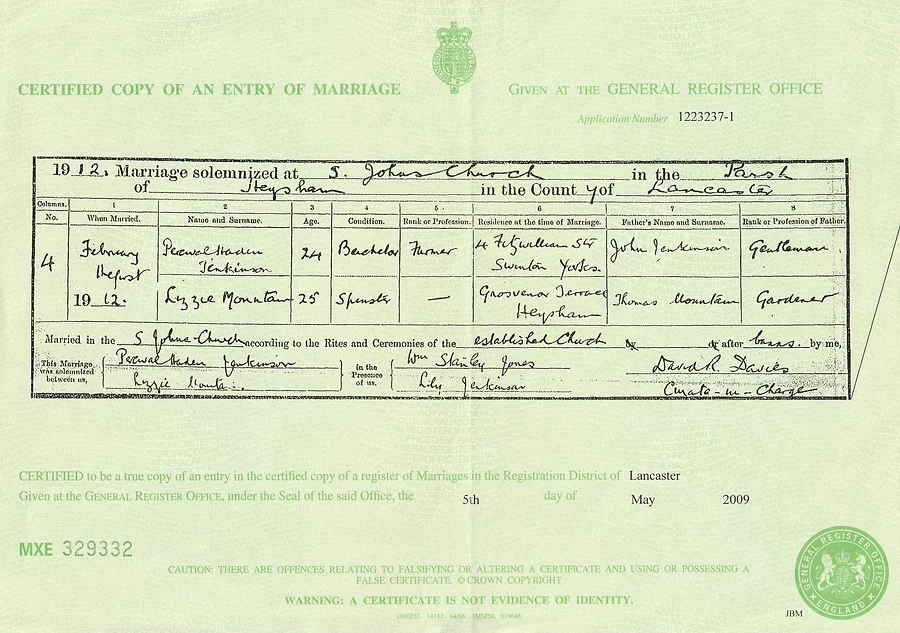 CERTIFIED COPY OF AN ENTRY OF MARRIAGE
GIVEN AT THE GENERAL REGISTER OFFICE
Application Number 1223237-1
1912. Marriage solemnized at S. Johns Church in the Parish
of Heysham in the County of Lancaster
Columns. 1 2 3 4 5 6 7 8
No. When Married. Name and Surname. Age. Condition. Rank or Profession. Residence at the time of Marriage. Father's Name and Surname. Rank or Profession of Father.
4 February 1912. Percival Haden Jenkinson 24 Bachelor Farmer 4 Fitzwilliam Str Swinton Yorks. John Jenkinson Gentleman
Lizzie Mountain 25 Spinster — Grosvenor Terrace Heysham Thomas Mountain Gardener
Married in the S Johns-Church according to the Rites and Ceremonies of the established Church or after banns. by me,
This Marriage was solemnized between us, Percival Haden Jenkinson
Lizzie Mountain
in the Presence of us. Wm Stanley Jones
Lily Jenkinson
David R. Davies
Curate-in-Charge
CERTIFIED to be a true copy of an entry in the certified copy of a register of Marriages in the Registration District of Lancaster
Given at the GENERAL REGISTER OFFICE, under the Seal of the said Office, the 5th day of May 2009
MXE 329332
CAUTION: THERE ARE OFFENCES RELATING TO FALSIFYING OR ALTERING A CERTIFICATE AND USING OR POSSESSING A
FALSE CERTIFICATE. © CROWN COPYRIGHT
WARNING: A CERTIFICATE IS NOT EVIDENCE OF IDENTITY.
GENERAL REGISTER OFFICE
ENGLAND
JBM